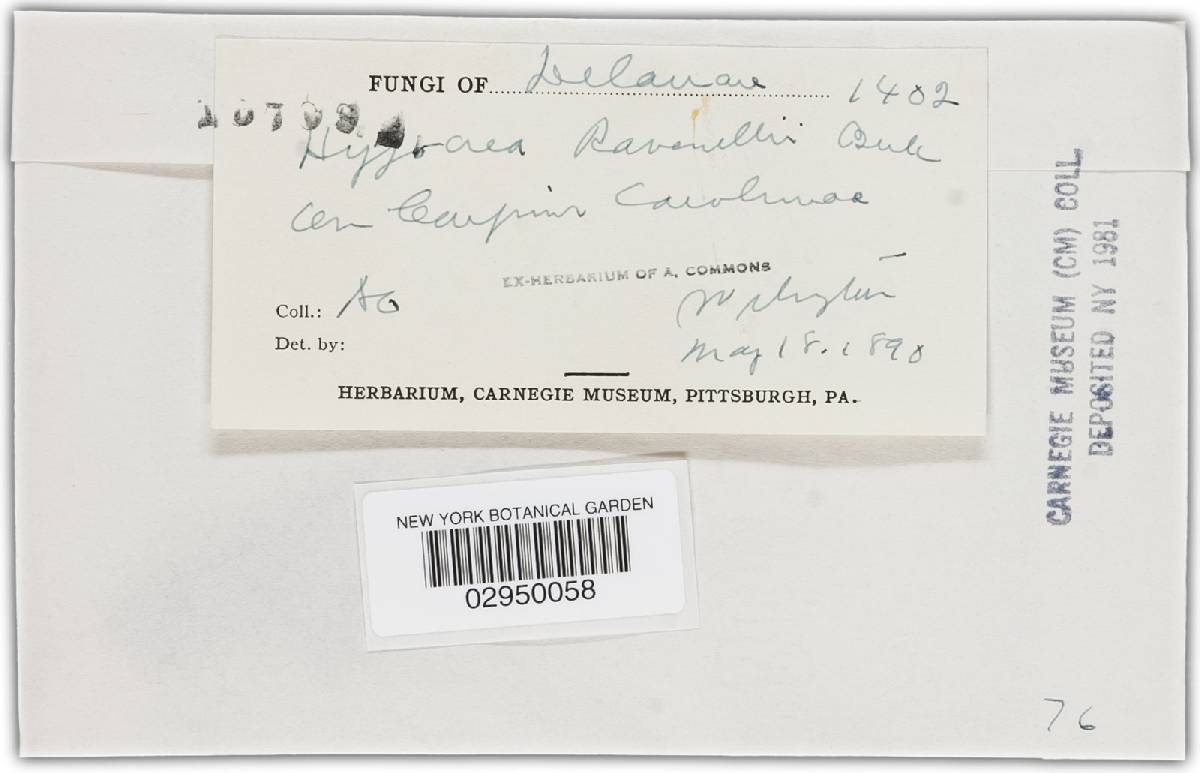 FUNGI OF Delaware 1402
10798
Hypocrea Ravenellii Berk
on Carpinus Caroliniae
EX-HERBARIUM OF A. COMMONS
Coll.: AC
Wilmington
Det. by:
May 18. 1890
HERBARIUM, CARNEGIE MUSEUM, PITTSBURGH, PA.
CARNEGIE MUSEUM (CM) COLL.
DEPOSITED NY 1981
NEW YORK BOTANICAL GARDEN
02950058
76